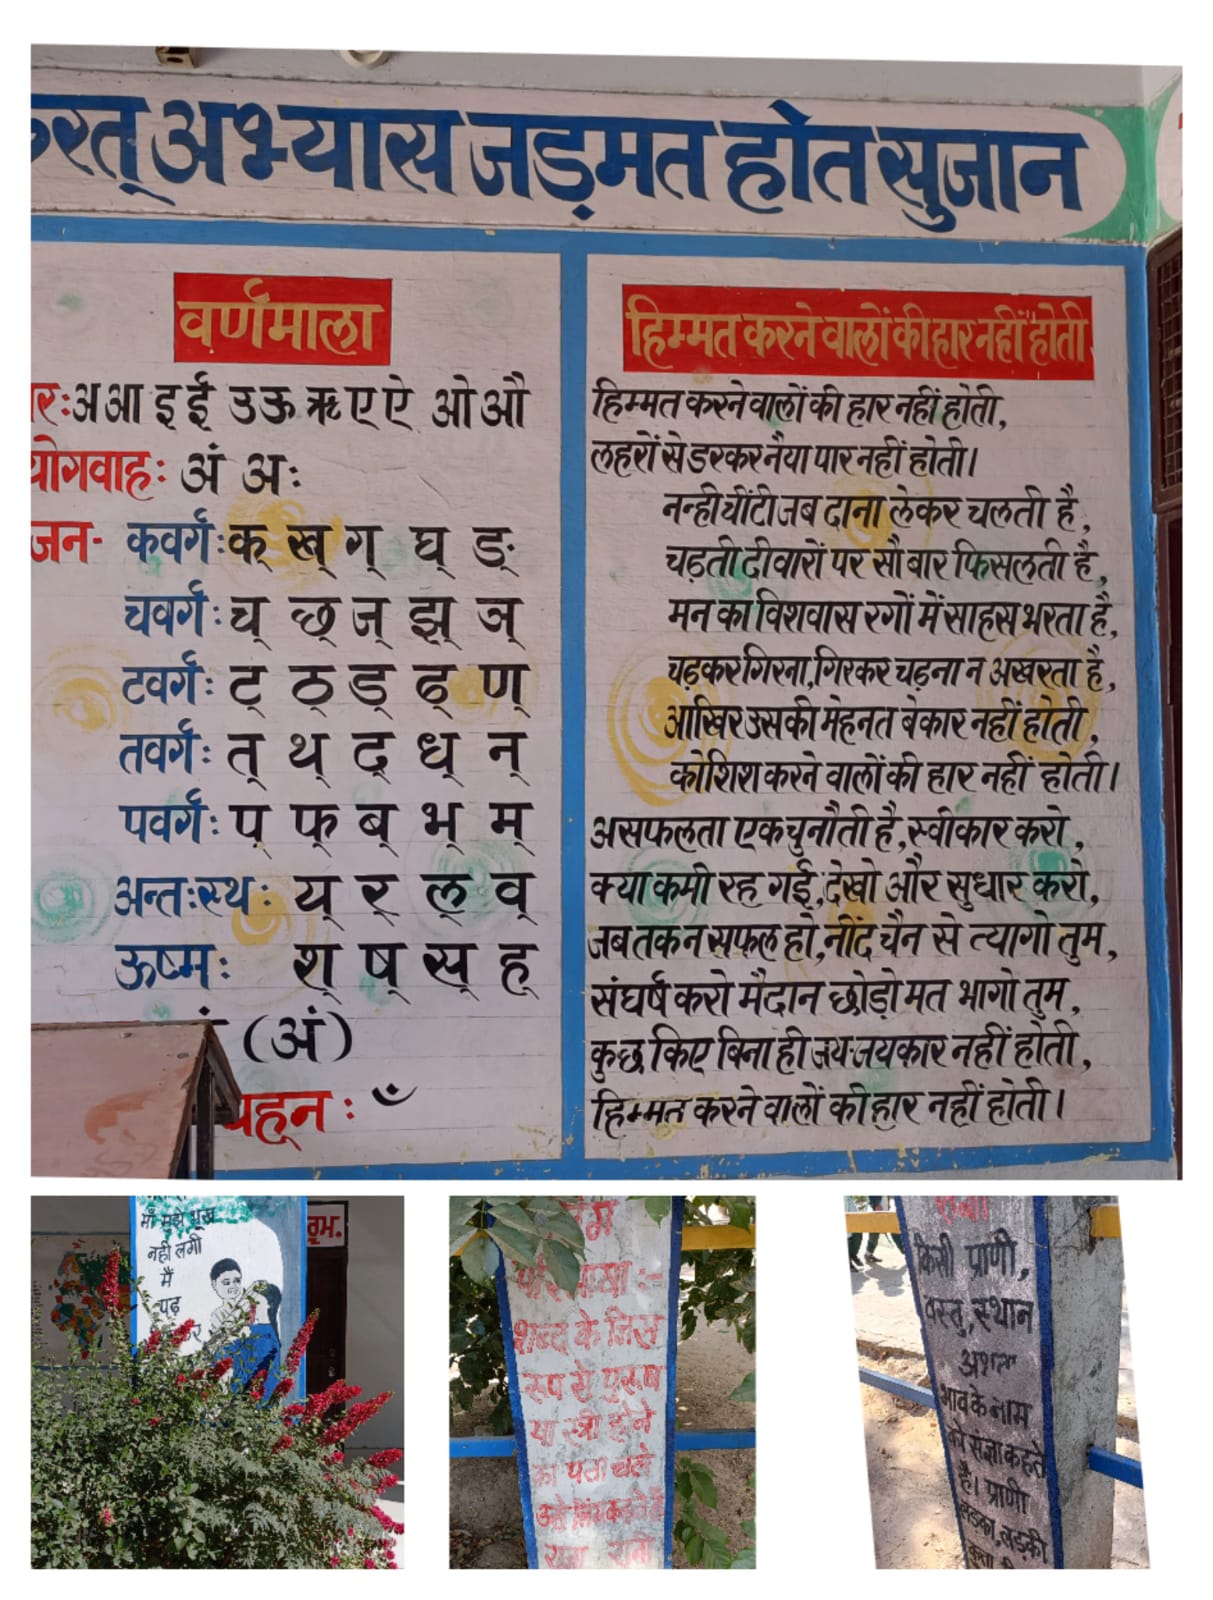 करत् अभ्यास जड़मत होत सुजान
वर्णमाला
अ आ इ ई उ ऊ ऋ ए ऐ ओ औ
योगवाहः अं अः
जन- कवर्गः क् ख् ग् घ् ङ्
चवर्गः च् छ् ज् झ् ञ्
टवर्गः ट् ठ् ड् ढ् ण्
तवर्गः त् थ् द् ध् न्
पवर्गः प् फ् ब् भ् म्
अन्तःस्थः य् र् ल् व्
ऊष्मः श् ष् स् ह्
(अं)
ँ
हिम्मत करने वालों की हार नहीं होती
हिम्मत करने वालों की हार नहीं होती,
लहरों से डरकर नैया पार नहीं होती।
नन्ही चींटी जब दाना लेकर चलती है,
चड़ती दीवारों पर सौ बार फिसलती है,
मन का विशवास रगों में साहस भरता है,
चढ़कर गिरना,गिरकर चढ़ना न अखरता है,
आखिर उसकी मेहनत बेकार नहीं होती,
कोशिश करने वालों की हार नहीं होती।
असफलता एक चुनौती है,स्वीकार करो,
क्या कमी रह गई,देखो और सुधार करो,
जब तक न सफल हो,नींद चैन से त्यागो तुम,
संघर्ष करो मैदान छोड़ो मत भागो तुम,
कुछ किए बिना ही जय-जयकार नहीं होती,
हिम्मत करने वालों की हार नहीं होती।
माँ मुझे भूख
नही लगी
मैं
पढ़
रूम.
शब्द के जिस
रूप से पुरूष
या स्त्री होने
का पता चले
किसी प्राणी,
वस्तु, स्थान
अथवा
भाव के नाम
को संज्ञा कहते
है। प्राणी
लड़का, लड़की